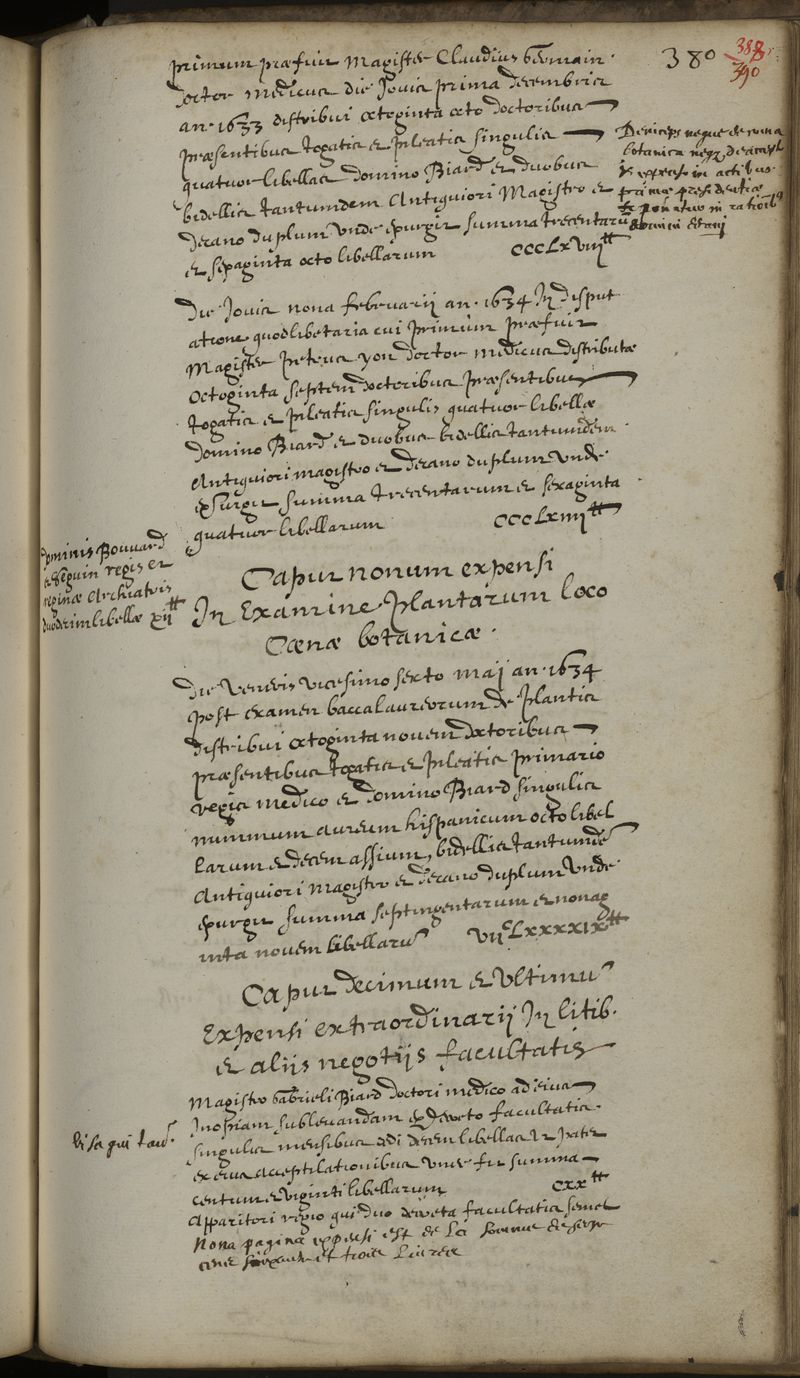 380
388
390
primum præfuit Magister Claudius Germain
doctor medicus die Jovis prima decembris
an. 1633 distribui octoginta octo doctoribus
præsentibus togatis & pileatis singulis
quatuor libellas domino Biard & duobus
bidellis tantumdem Antiquiori Magistro &
decano duplum unde exurgit summa trecentarum
& sexaginta octo libellarum CCCLXViij tt
Deniceps neque de cœna
botanica neque de
expenso in actibus
primæ præsidentiæ
in rationibus
domini decani
Die Jovis nona februarij an. 1634 In disput
atione quodlibetaria cui primum præfuit
Magister petrus yon doctor medicus distributæ
octoginta septem doctoribus præsentibus
togatis & pileatis singulis quatuor libellæ
domino Biard & duobus bidellis tantumdem
Antiquiori magistro & decano duplum unde
exsurgit summa trecentarum & sexaginta
quatuor libellarum CCCLXiiij tt
Dominis Bouvard
& Seguin regis et
reginæ Archiatris
duodecim libellæ xij tt
Caput nonum expensi
In Examine plantarum loco
Cœnæ botanicæ.
Die Veneris vicesimo sexto maij an. 1634
post examen baccalaureorum de plantis
distribui octoginta novem doctoribus
præsentibus togatis & pileatis primario
regis medico & domino Biard singulis
nummum aureum hispanicum octo libel
larum & decem assium, bidellis tantumdē
Antiquiori magistro & decano duplum unde
exurgit summa septingentarum & nonag
inta novem libellarū Vijc LXXXXiX tt
Caput decimum & Ultimū
Expensi extraordinarij In litib.
& alijs negotijs facultatis
Magistro Gabrieli Biard doctori medico ad eius
Inopiam sublevandam ex decreto facultatis
singulis mensibus dedi decem libellas ut patet
ex eius acceptilationibus unde fit summa
centum & viginti libellarum CXX tt
Apparitori regio qui duo decreta facultatis semel
nona pagina expensi est de la somme de sept
cens soixante et trois livres